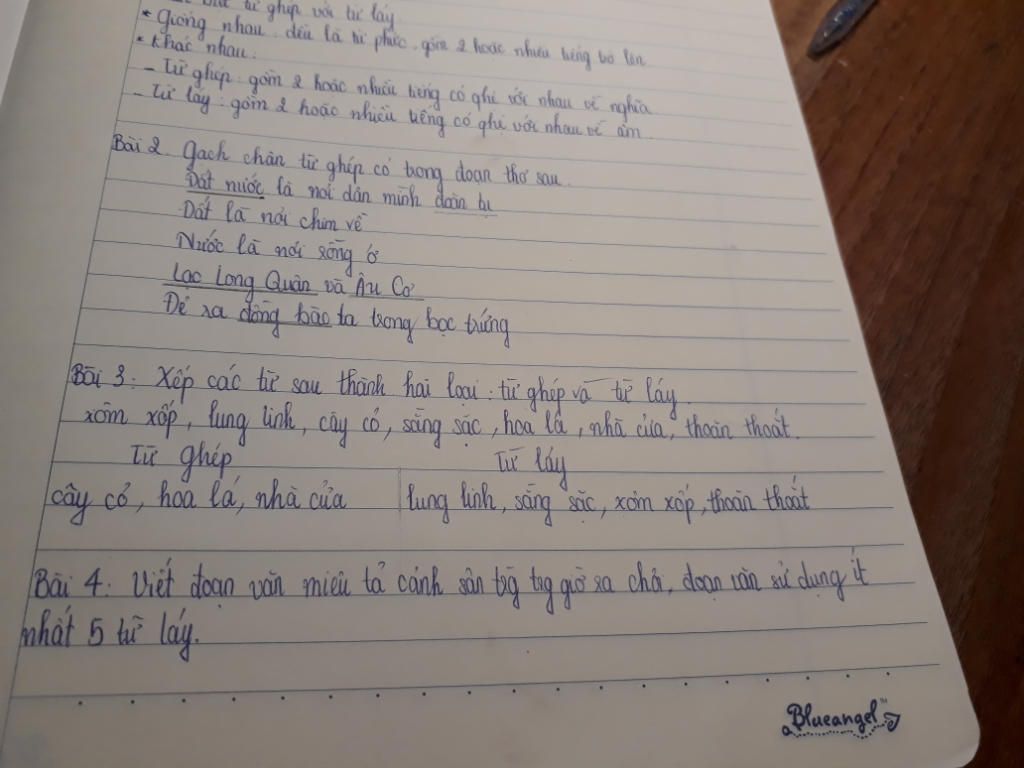 biệt từ ghép với từ láy
* Giống nhau: đều là từ phức, gồm 2 hoặc nhiều tiếng trở lên
* Khác nhau:
- Từ ghép: gồm 2 hoặc nhiều tiếng có ghi với nhau về nghĩa.
- Từ láy: gồm 2 hoặc nhiều tiếng có ghi với nhau về âm
Bài 2. Gạch chân từ ghép có trong đoạn thơ sau.
Đất nước là nơi dân mình đoàn tụ
Đất là nơi chim về
Nước là nơi rồng ở
Lạc Long Quân và Âu Cơ
Đẻ ra đồng bào ta trong bọc trứng
Bài 3: Xếp các từ sau thành hai loại: từ ghép và từ láy.
xôm xốp, lung linh, cây cỏ, sằng sặc, hoa lá, nhà cửa, thoăn thoắt.
Từ ghép Từ láy
cây cỏ, hoa lá, nhà cửa lung linh, sằng sặc, xôm xốp, thoăn thoắt
Bài 4: Viết đoạn văn miêu tả cảnh sân tg tg giờ ra chơi, đoạn văn sử dụng ít
nhất 5 từ láy.
Blueangel™